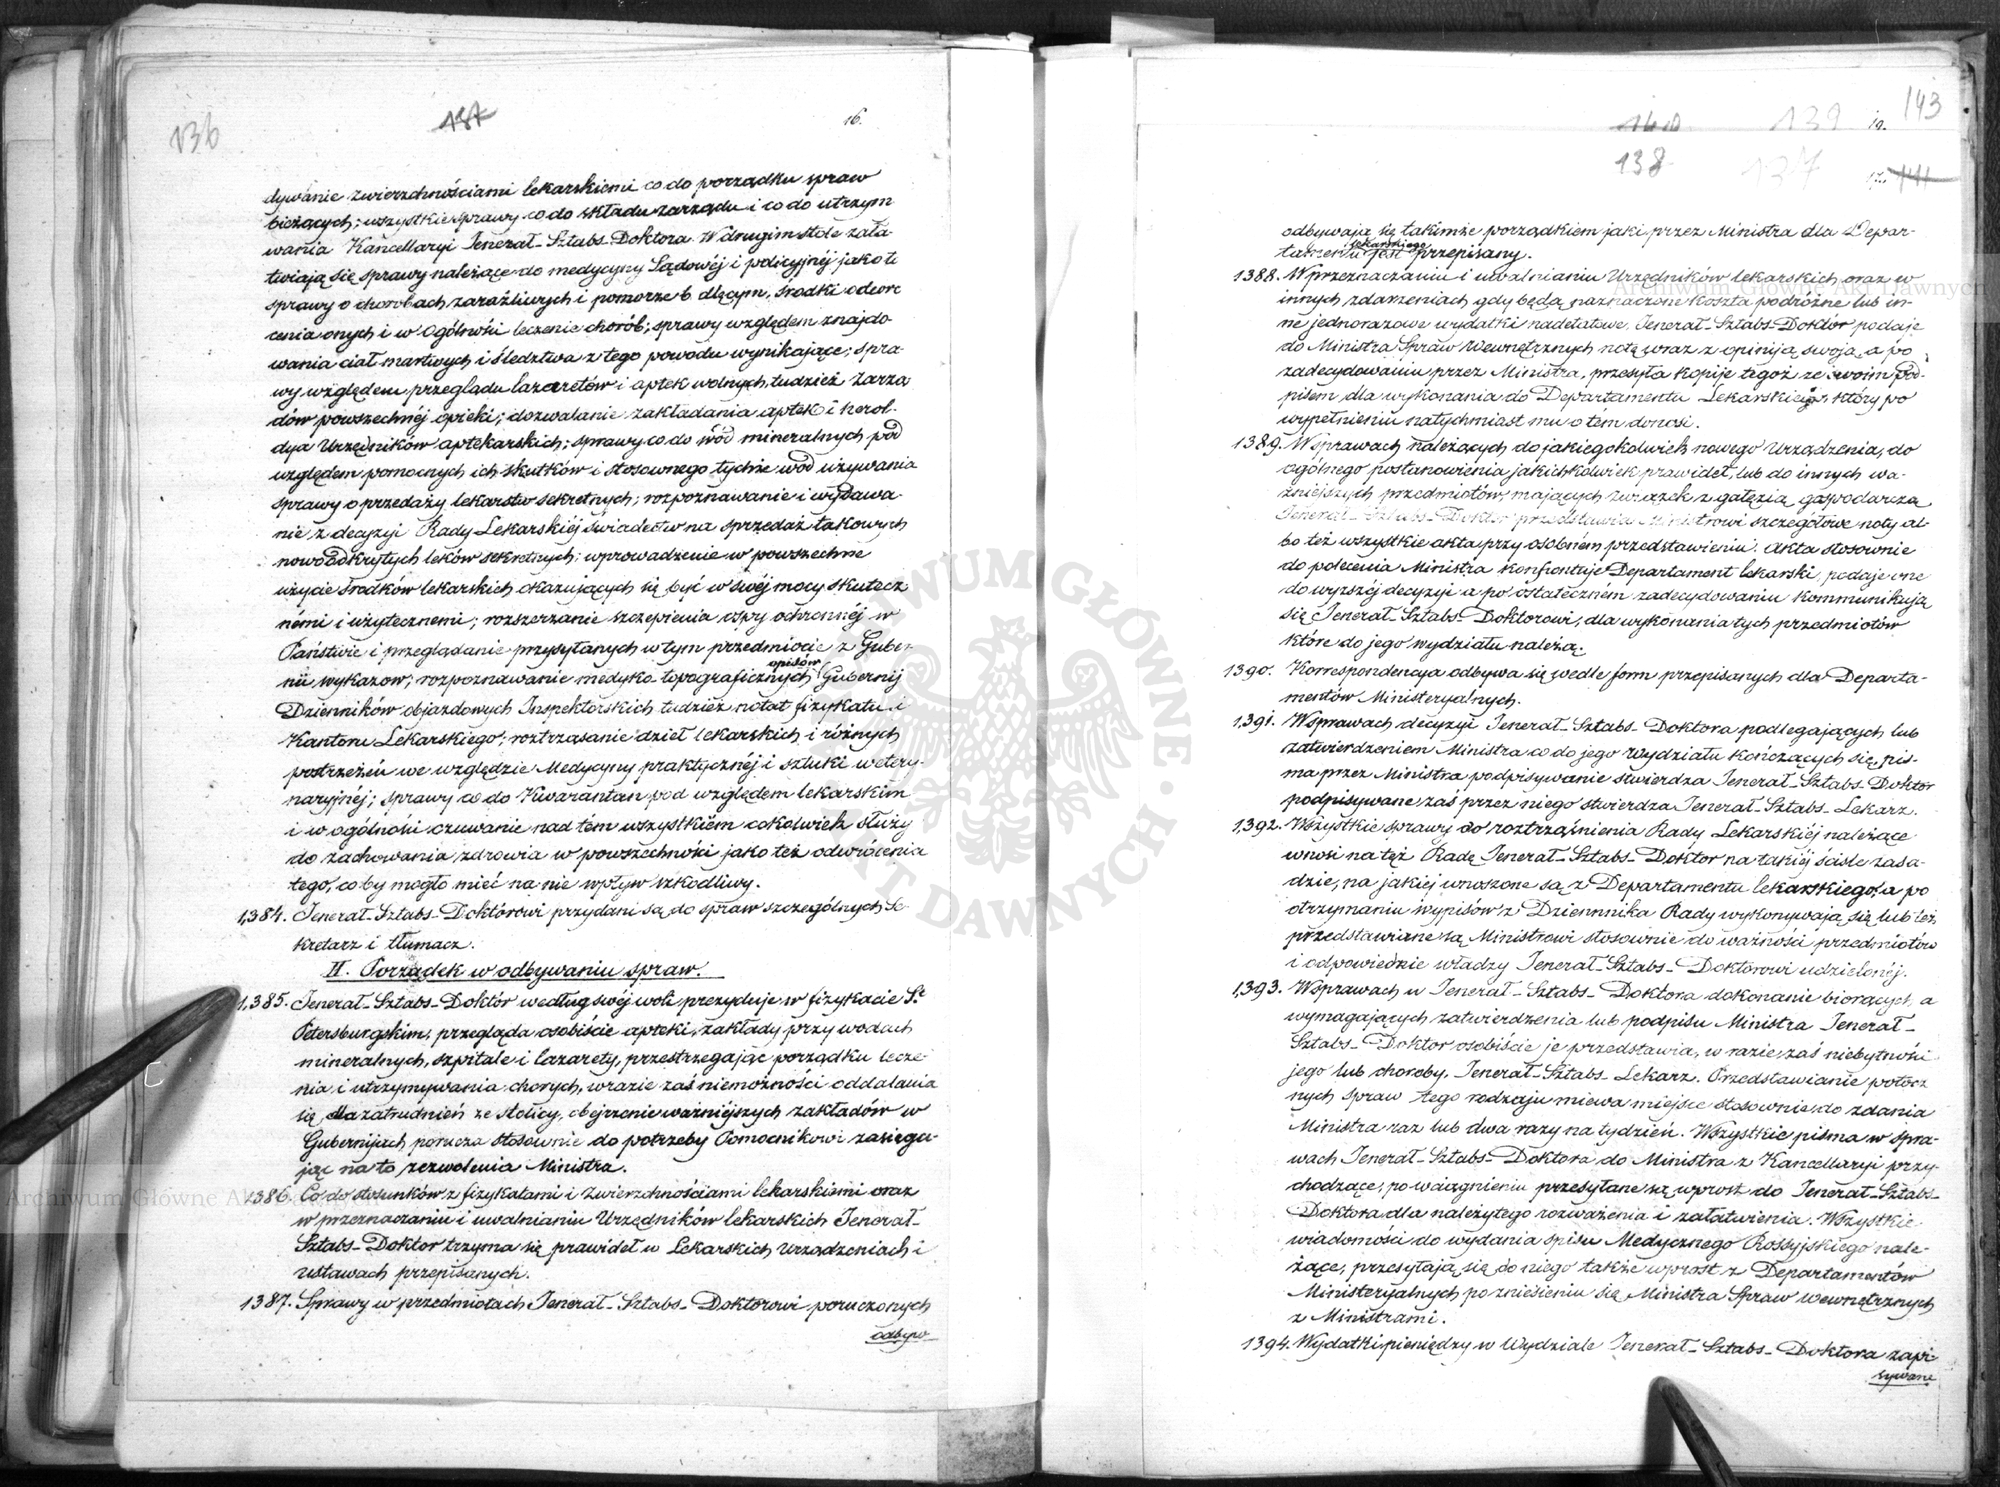 136
137
16.
dywanie zwierzchnościami lekarskiemi co do porządku spraw
bieżących; wszystkie sprawy co do składu zarządu i co do utrzym
wania Kancellaryi Jenerał-Sztabs-Doktora. W drugim stole zała-
twiają się sprawy należące do medycyny Sądowéj i policyjnéj jako to
sprawy o chorobach zaraźliwych i pomorze bydlęcym, środki odwró
cenia onych i w ogólności leczenie chorób; sprawy względem znajdo
wania ciał martwych i śledztwa z tego powodu wynikające; spra-
wy względem przeglądu lazaretów i aptek wolnych, tudzież Zarzą
dów powszechnéj opieki; dozwalanie zakładania aptek i herol-
dya Urzędników aptekarskich; sprawy co do wód mineralnych pod
względem pomocnych ich skutków i stosownego tychże wód używania
sprawy o przedaży lekarstw sekretnych; rozpoznawanie i wydawa-
nie z decyzyi Rady Lekarskiéj świadectw na sprzedaż takowych
nowoodkrytych leków sekretnych; wprowadzenie w powszechne
użycie środków lekarskich okazujących się być w swéj mocy skutecz
némi i użytecznemi; rozszerzanie szczepienia ospy ochronnéj w
Państwie i przeglądanie przysyłanych w tym przedmiocie z Guber-
nii wykazów; rozpoznawanie medyko topograficznych opisów Gubernij
Dzienników objazdowych Inspektorskich tudzież notat fizykatu i
Kantoru Lekarskiego; roztrząsanie dzieł lekarskich i różnych
postrzeżeń we względzie Medycyny praktycznéj i sztuki wetery-
naryjnéj; sprawy co do Kwarantan pod względem lekarskim
i w ogólności czuwanie nad tém wszystkiém cokolwiek służy
do zachowania zdrowia w powszechności jako też odwrócenia
tego, co by mogło mieć na nie wpływ szkodliwy.
1,384. Jenerał-Sztabs-Doktórowi przydani są do spraw szczególnych Se-
kretarz i tłumacz.
II. Porządek w odbywaniu spraw.
1,385. Jenerał-Sztabs-Doktór według swéj woli prezyduje w fizykacie St.
Petersburgskim, przegląda osobiście apteki, zakłady przy wodach
mineralnych, szpitale i lazarety, przestrzegając porządku lecze-
nia i utrzymywania chorych, w razie zaś niemożności oddalania
się dla zatrudnień ze stolicy, obejrzenie ważniejszych zakładów w
Gubernijach porucza stosownie do potrzeby Pomocnikowi zasięga-
jąc na to zezwolenia Ministra.
1386. Co do stosunków z fizykatami i zwierzchnościami lekarskiemi oraz
w przeznaczaniu i uwalnianiu Urzędników lekarskich Jenerał-
Sztabs-Doktor trzyma się prawideł w Lekarskich Urządzeniach i
Ustawach przepisanych.
1387. Sprawy w przedmiotach Jenerał-Sztabs-Doktorowi poruczonych
odbyw-
143
140
139
19.
138
137
17. 141
odbywają się takimże porządkiem jaki przez Ministra dla Depar-
tamentu lekarskiego jest przepisany.
1388. W przeznaczaniu i uwalnianiu Urzędników lekarskich, oraz w
innych zdarzeniach gdy będą naznaczone koszta podróżne lub in-
ne jednorazowe wydatki nadetatowe, Jenerał-Sztabs-Doktór podaje
do Ministra Spraw Wewnętrznych notę wraz z opiniją swoją, a po
zadecydowaniu przez Ministra, przesyła kopije tegoż ze swoim pod-
pisem, dla wykonania do Departamentu Lekarskiego, który po
wypełnieniu natychmiast mu o tém donosi.
1389. W sprawach należących do jakiegokolwiek nowego Urządzenia, do
ogólnego postanowienia jakichkolwiek prawideł, lub do innych wa-
żniejszych przedmiotów, mających związek z gałęzią gaspodarczą
Jenerał-Sztabs-Doktor przedstawia Ministrowi szczegółowe noty al-
bo też wszystkie akta przy osobném przedstawieniu. Akta stosownie
do polecenia Ministra Konfrontuje Departament lekarski, podaje one
do wyższéj decyzyi a po ostatecznem zadecydowaniu kommunikują
się Jenerał-Sztabs-Doktorowi, dla wykonania tych przedmiotów
które do jego wydziału należą.
1390. Korrespondencya odbywa się wedle form przepisanych dla Departa-
mentów Ministeryalnych.
1,391. W sprawach decyzyi Jenerał-Sztabs-Doktora podlegających lub
zatwierdzeniem Ministra co do jego wydziału kończących się, pis-
ma przez Ministra podpisywanie stwierdza Jenerał-Sztabs-Doktor
podpisywane zaś przez niego stwierdza Jenerał-Sztabs-Lekarz.
1,392. Wszystkie sprawy do roztrząśnienia Rady Lekarskiéj należące
wnosi na też Radę Jenerał-Sztabs-Doktor na takiéj ściśle zasa-
dzie, na jakiéj wnoszone są z Departamentu lekarskiego, a po
otrzymaniu wypisów z Dziennnika Rady wykonywają się lub też,
przedstawiane są Ministrowi stosownie do ważności przedmiotów
i odpowiednie władzy Jenerał-Sztabs-Doktorowi udzielonéj.
1,393. W sprawach u Jenerał-Sztabs-Doktora dokonanie biorących, a
wymagających zatwierdzenia lub podpisu Ministra Jenerał-
Sztabs-Doktor osobiście je przedstawia, w razie zaś niebytności
jego lub choroby, Jenerał-Sztabs-Lekarz. Przedstawianie potocz
nych spraw tego rodzaju miewa miejsce stosownie do zdania
Ministra raz lub dwa razy na tydzień. Wszystkie pisma w spra-
wach Jenerał-Sztabs-Doktora do Ministra z Kancellaryi przy-
chodzące, po wciągnieniu przesyłane są wprost do Jenerał-Sztabs-
Doktora dla należytego rozważenia i załatwienia. Wszystkie
wiadomości do wydania spisu Medycznego Rossyjskiego nale-
żące, przesyłają się do niego także wprost z Departamentów
Ministeryalnych po zniesieniu się Ministra Spraw Wewnętrznych
z Ministrami.
1394. Wydatki pieniędzy w Wydziale Jenerał-Sztabs-Doktora zapi-
sywane
Archiwum Główne Akt Dawnych
ARCHIWUM GŁÓWNE AKT DAWNYCH
Archiwum Główne Akt Dawnych